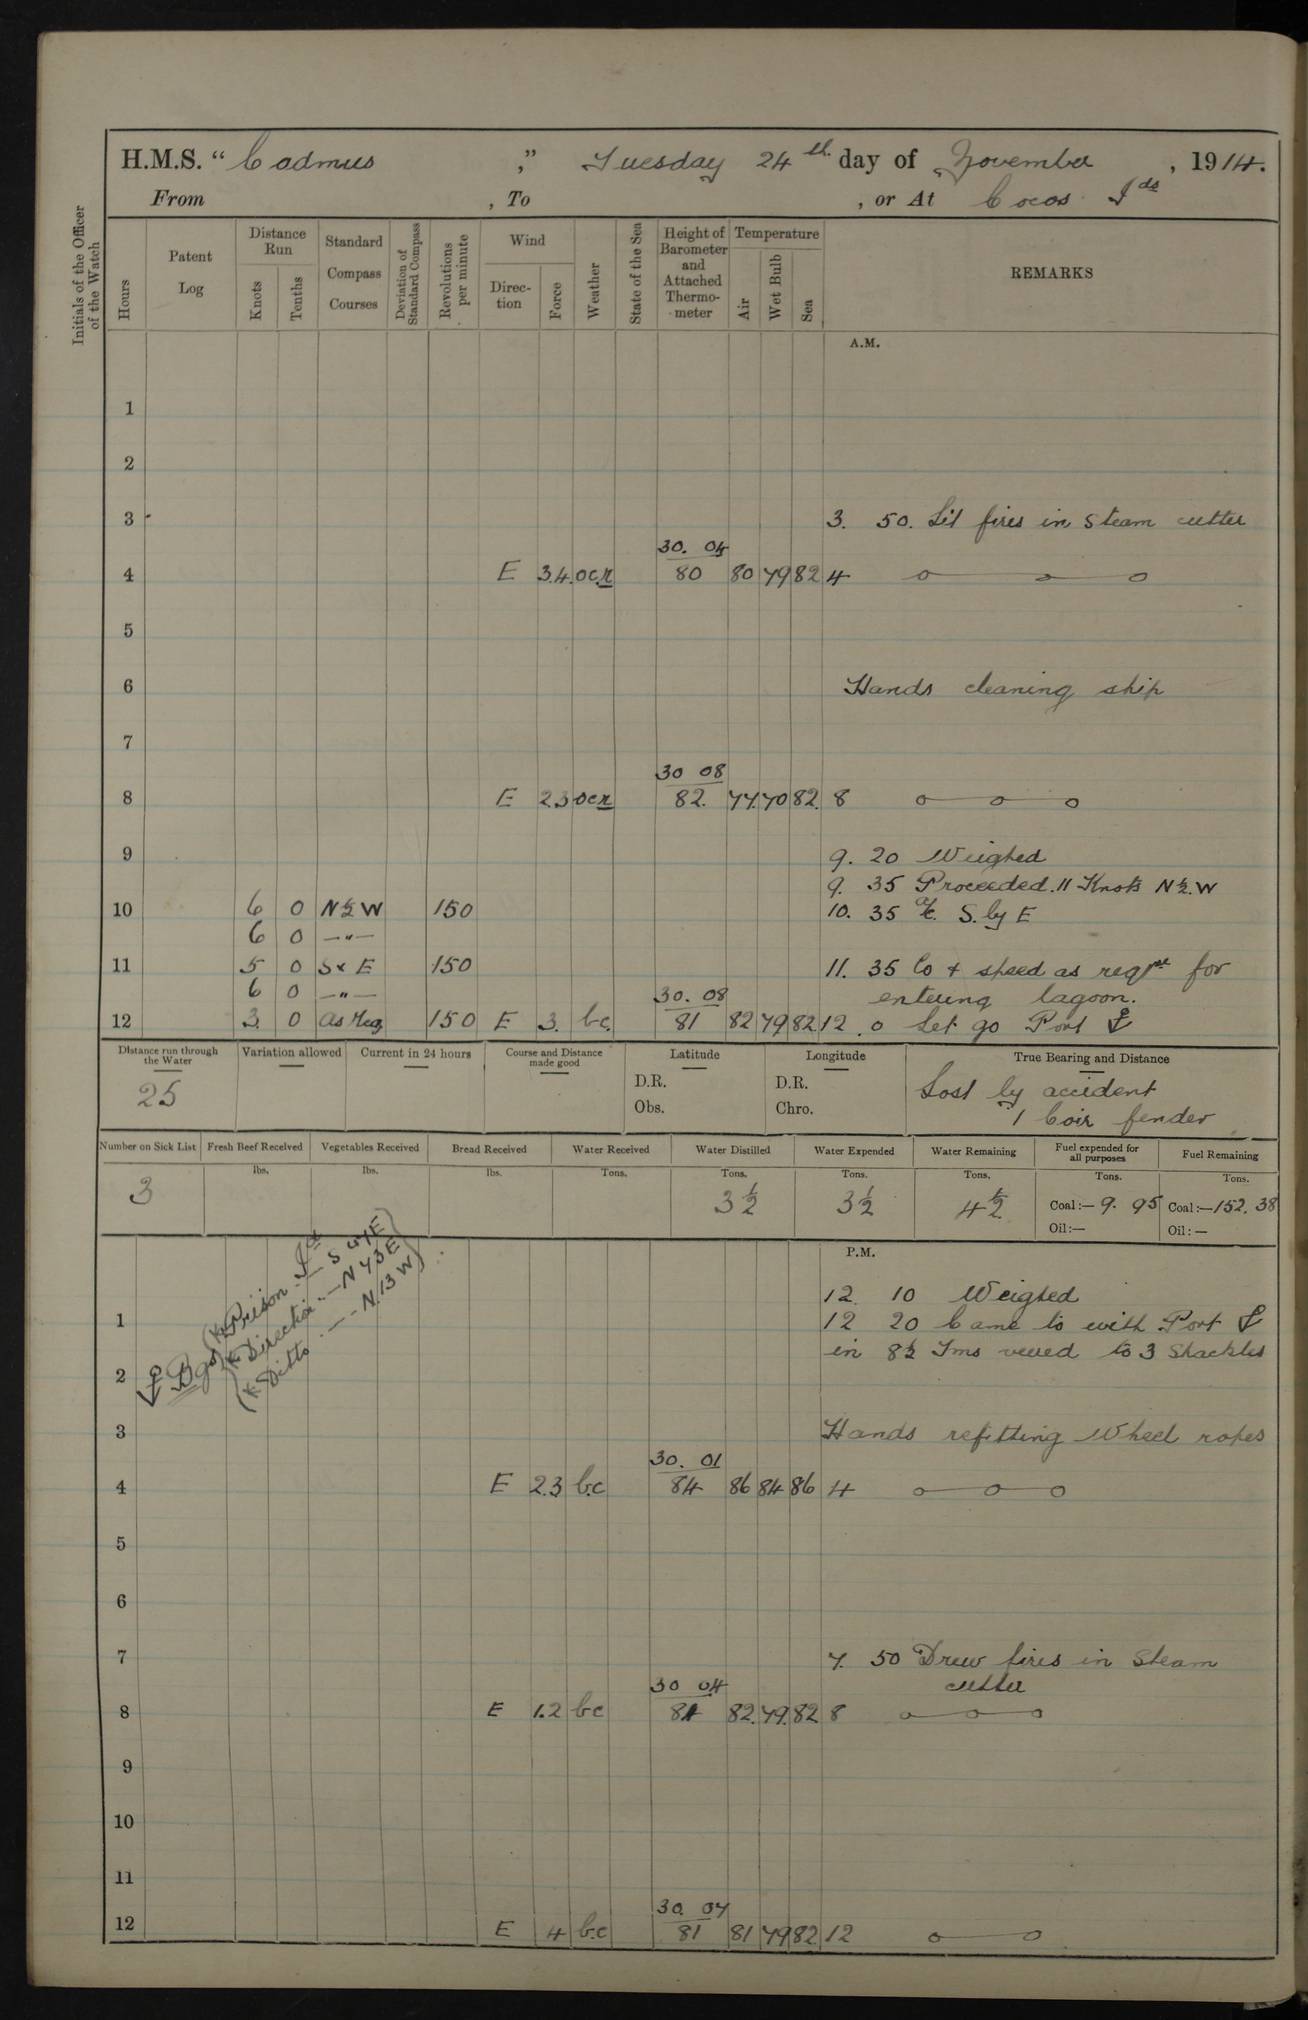 H.M.S. "Cadmus", Tuesday 24th day of November, 1914.
From , To , or At Cocos Ids
Initials of the Officer of the Watch
Hours
Patent Log
Distance Run
Knots
Tenths
Standard Compass Courses
Deviation of Standard Compass
Revolutions per minute
Wind
Direction
Force
Weather
State of the Sea
Height of Barometer and Attached Thermometer
Temperature
Air
Wet Bulb
Sea
REMARKS
A.M.
1
2
3 3. 50. Lit fires in steam cutter
30. 04
4 E 3.4. ocr 80 80 79 82 4
5
6 Hands cleaning ship
7
30 08
8 E 2.3 ocr 82. 77. 70 82. 8
9 9. 20 Weighed
9. 35 Proceeded. 11 Knots N½.W
10 6 0 N½W 150 10. 35 a/c. S. by E
6 0 —"—
11 5 0 SxE 150 11. 35 Co + speed as reqre for
6 0 —"— 30. 08 entering lagoon.
12 3. 0 as req. 150 E 3. bc. 81 82 79 82 12. 0 Let go Port ⚓
Distance run through the Water
Variation allowed
Current in 24 hours
Course and Distance made good
Latitude
Longitude
True Bearing and Distance
25 D.R. D.R. Lost by accident
Obs. Chro. 1 Coir fender
Number on Sick List
Fresh Beef Received
Vegetables Received
Bread Received
Water Received
Water Distilled
Water Expended
Water Remaining
Fuel expended for all purposes
Fuel Remaining
lbs. lbs. lbs. Tons. Tons. Tons. Tons. Tons. Tons.
3 3½ 3½ 4½ Coal:— 9. 95 Coal:— 152. 38
Oil:— Oil:—
P.M.
⚓ Bgs
Prison Id — S 47 E
Direction — N 43 E
Ditto — N. 13 W
12. 10 Weighed
1 12 20 Came to with Port ⚓
in 8½ Fms veered to 3 Shackles
2
3 Hands refitting Wheel ropes
30. 01
4 E 2.3 b.c 84 86 84 86 4
5
6
7 7. 50 Drew fires in Steam
30 04 cutter
8 E 1.2 bc 81 82. 79. 82 8
9
10
11
30. 07
12 E 4 b.c 81 81 79 82 12